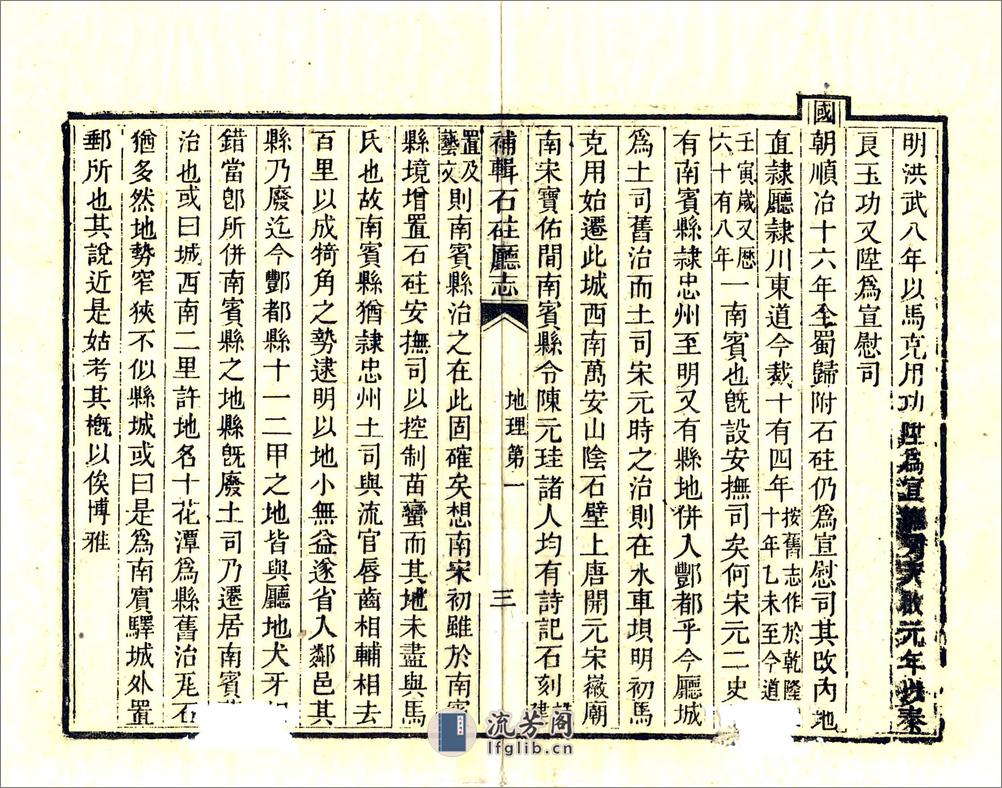 明洪武八年以馬克用功陞爲宣天啟元年以秦
良玉功又陞爲宣慰司
國朝順治十六年全蜀歸附石砫仍爲宣慰司其改內地
直隸廳隸川東道今裁十有四年按舊志作於乾隆十年乙未至今道
壬寅歲又歷六十有八年一南賓也旣設安撫司矣何宋元二史
有南賓縣隸忠州至明又有縣地併入酆都乎今廳城
爲土司舊治而土司宋元時之治則在水車垻明初馬
克用始遷此城西南萬安山陰石壁上唐開元宋薇廟
南宋寶佑間南賓縣令陳元珪諸人均有詩記石刻
補輯石砫廳志 地理第一 三
置及藝文則南賓縣治之在此固確矣想南宋初雖於南賓
縣境增置石砫安撫司以控制苗蠻而其地未盡與馬
氏也故南賓縣猶隸忠州土司與流官唇齒相輔相去
百里以成犄角之勢逮明以地小無益遂省入鄰邑其
縣乃廢迄今酆都縣十一二甲之地皆與廳地犬牙
錯當卽所併南賓縣之地縣旣廢土司乃遷居南賓
治也或曰城西南二里許地名十花潭爲縣舊治瓦石
猶多然地勢窄狹不似縣城或曰是爲南賓驛城外置
郵所也其說近是姑考其槪以俟博雅
流芳阁
lfglib.cn